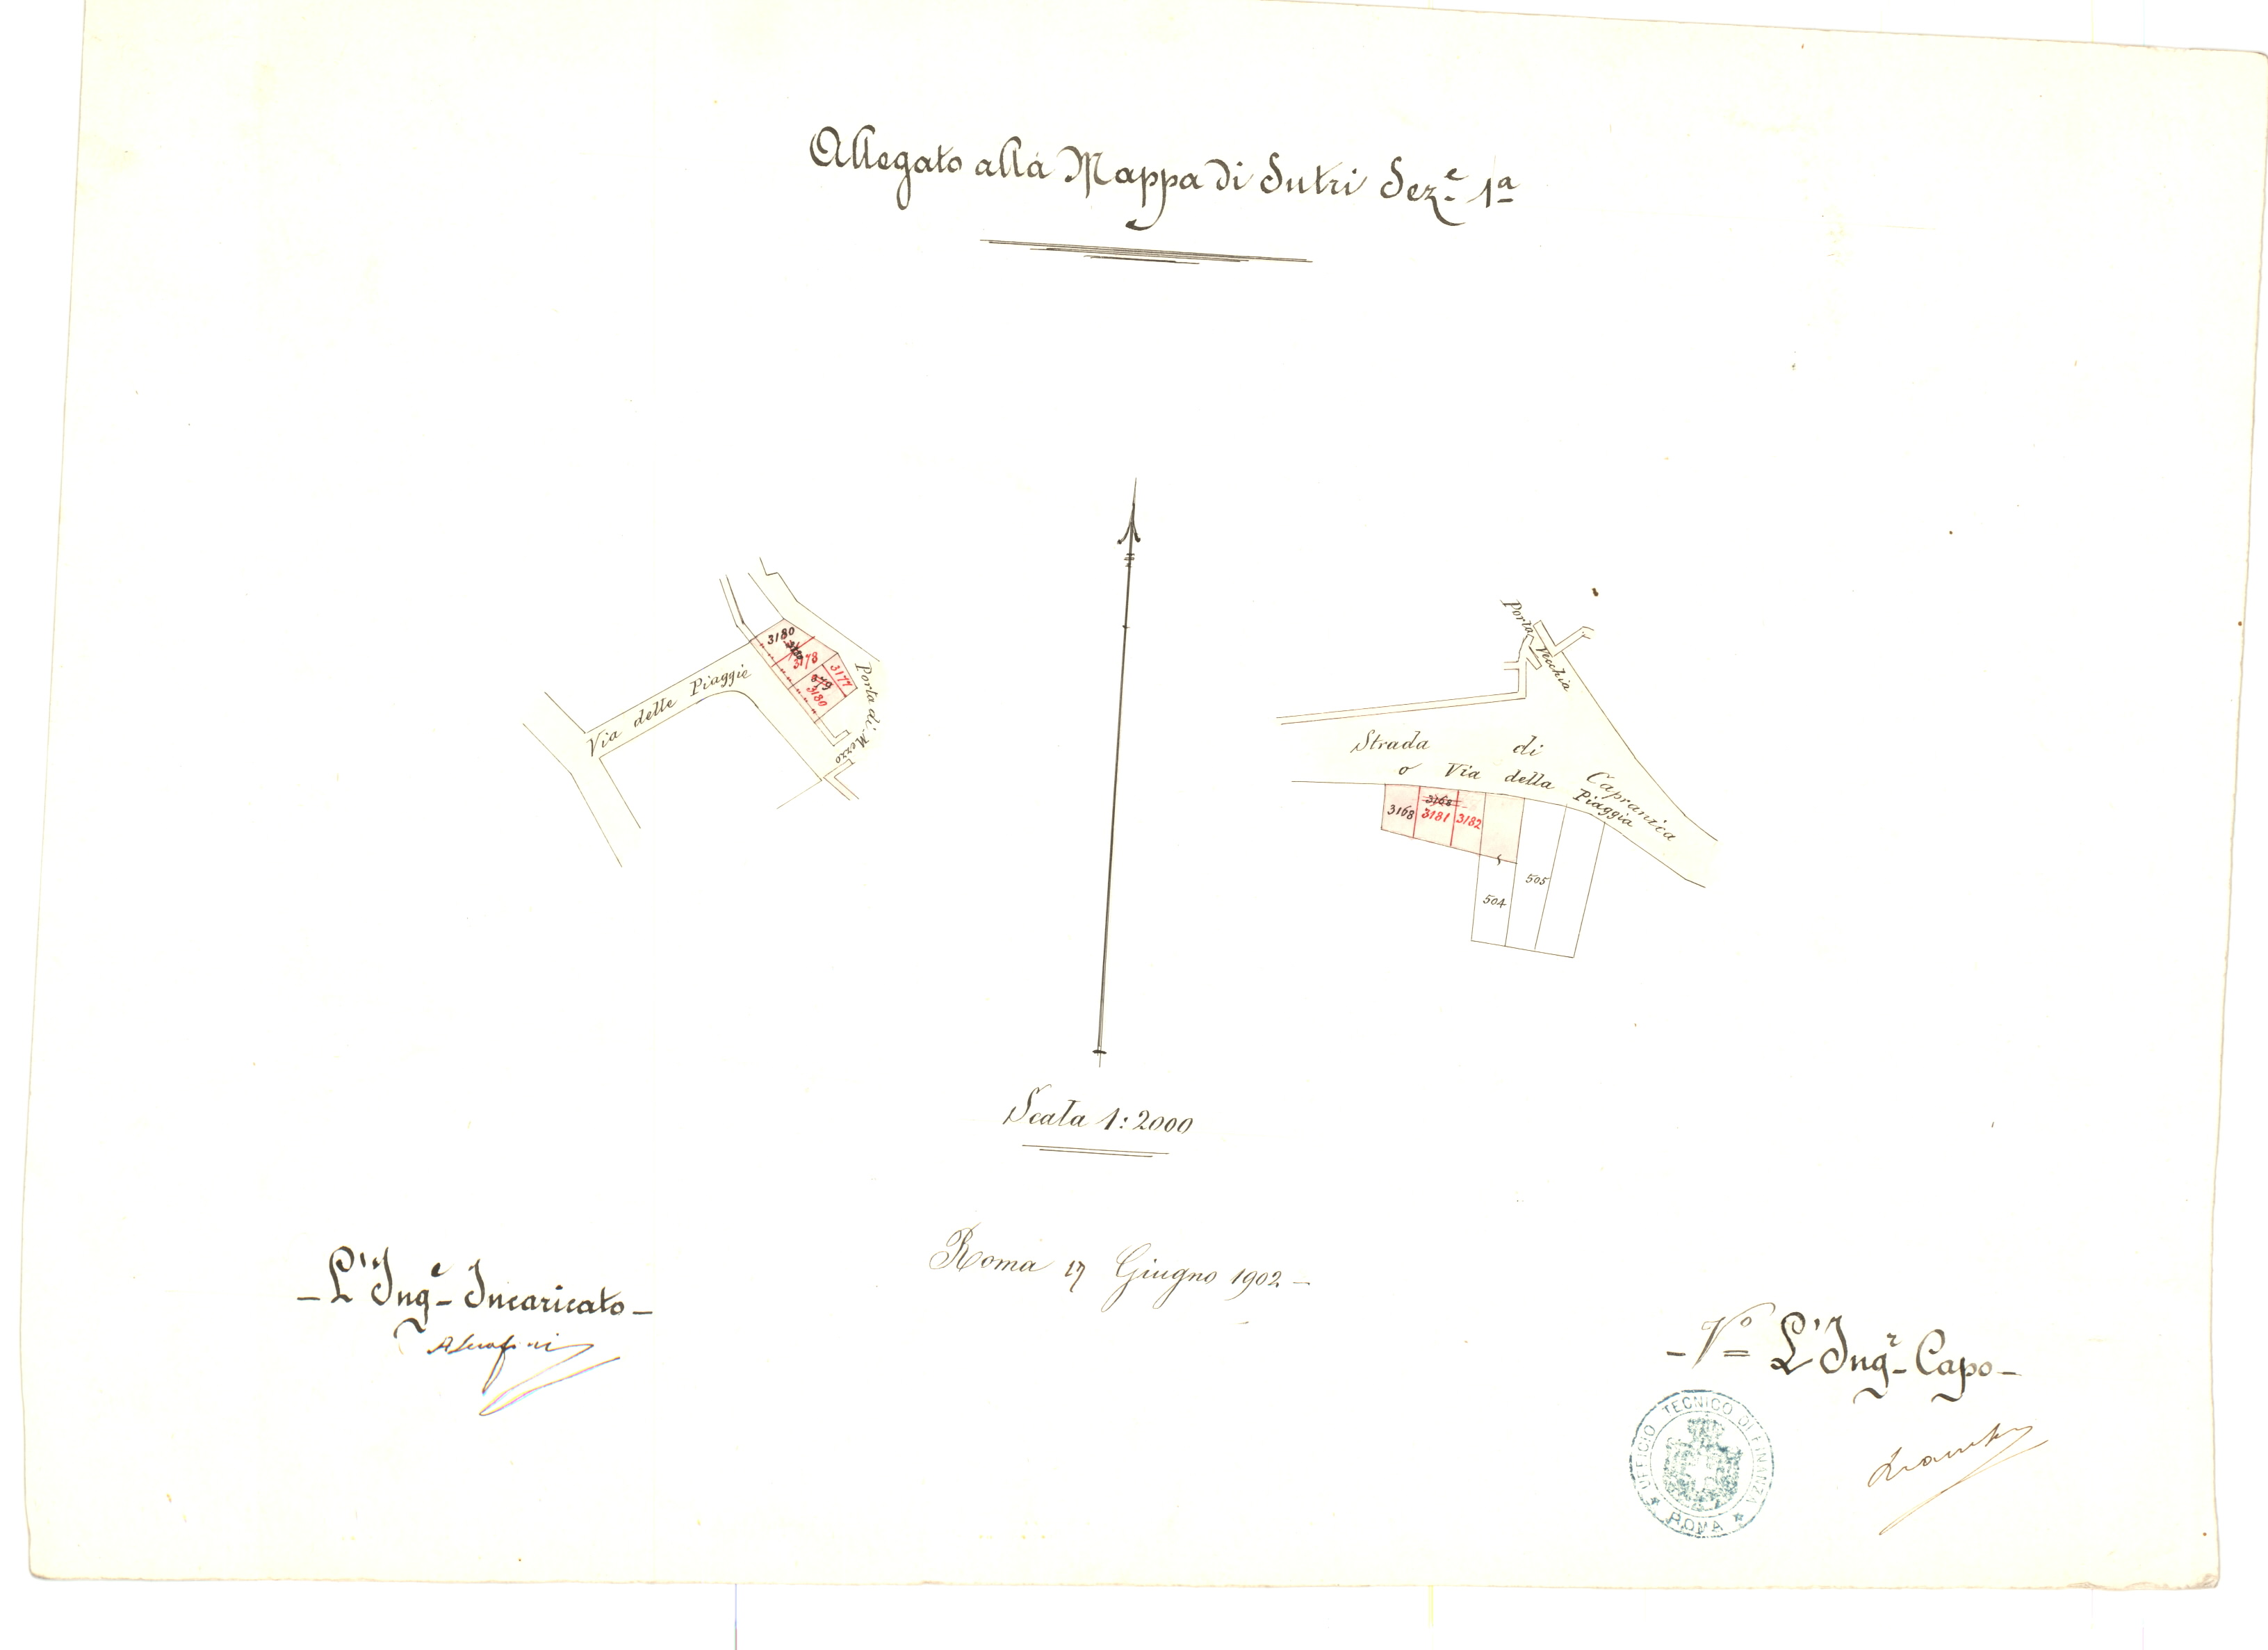 Allegato alla Mappa di Sutri Sez.e 1a
3180
3178
3177
379
3180
Via delle Piaggie
Porta di Mezzo
Porta Vecchia
Strada di Capranica
o Via della Piaggia
3168
3168
3181
3182
505
504
Scala 1:2000
Roma 17 Giugno 1902 –
– L'Ing.e Incaricato –
– Vo L'Ing.r Capo –
UFFICIO TECNICO DI FINANZA
ROMA